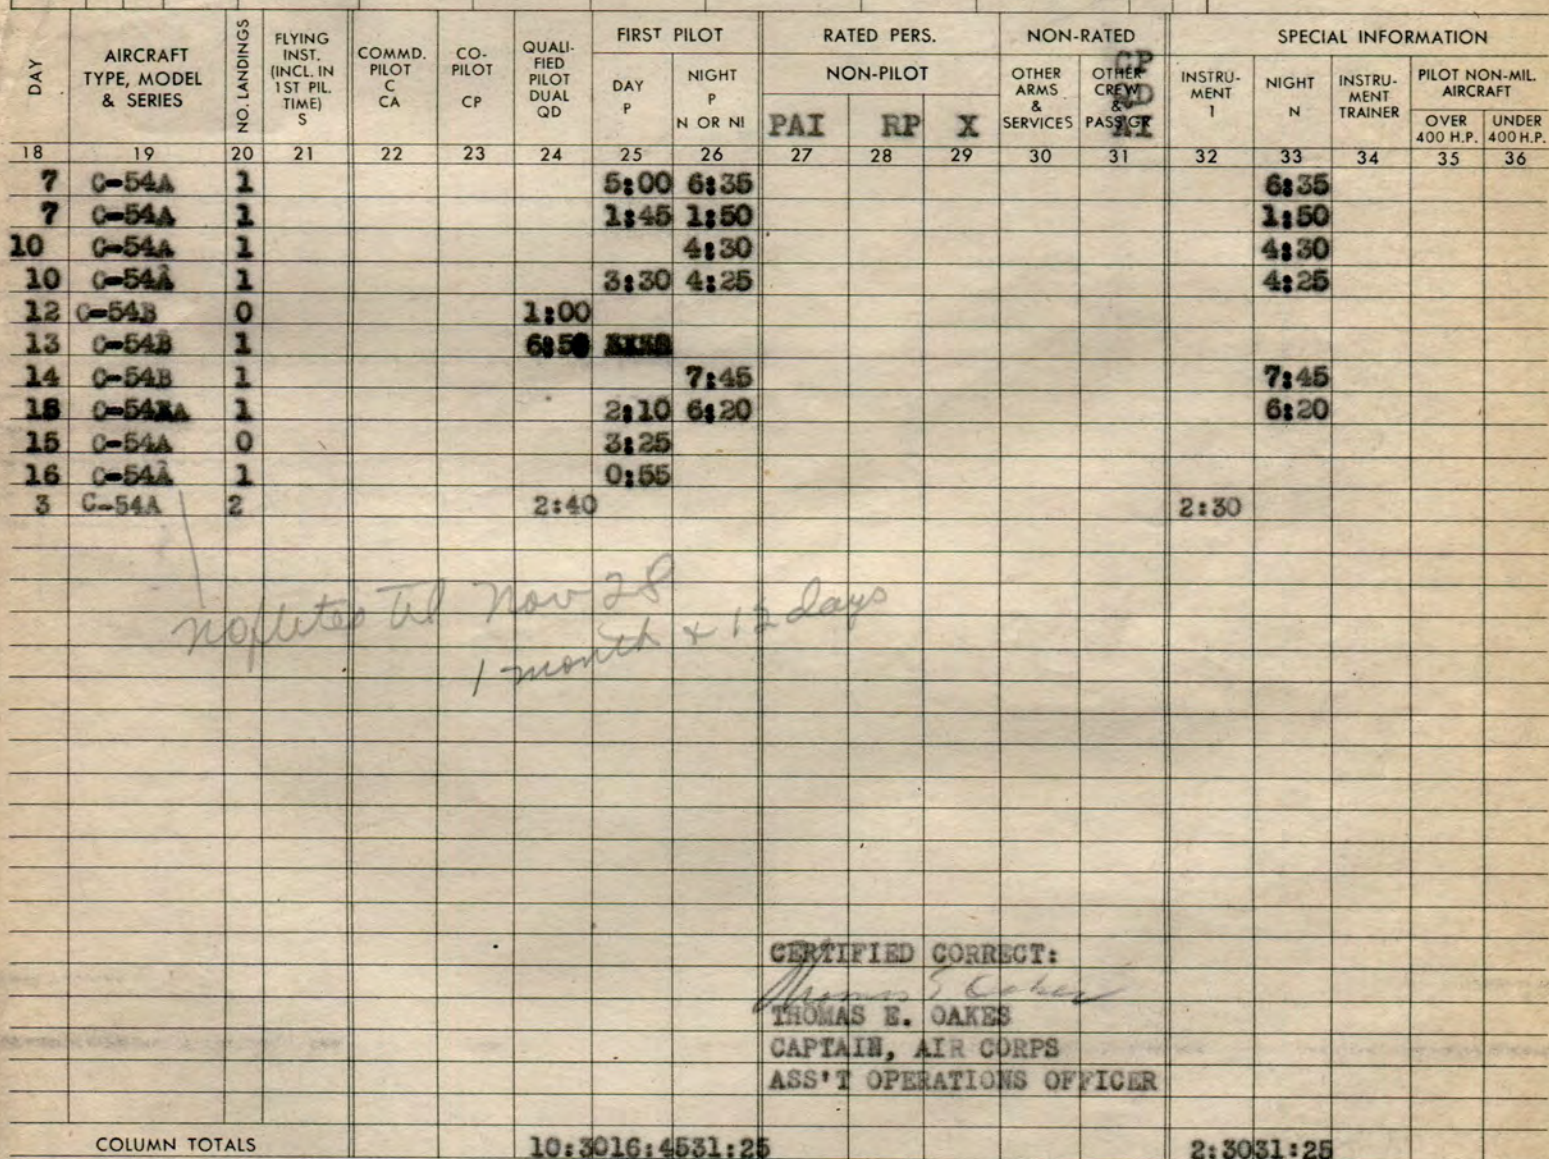 DAY AIRCRAFT TYPE, MODEL & SERIES NO. LANDINGS FLYING INST. (INCL. IN 1ST PIL. TIME) S COMMD. PILOT C CA CO-PILOT CP QUALI-FIED PILOT DUAL QD FIRST PILOT DAY P NIGHT P N OR NI RATED PERS. NON-PILOT PAI RP X NON-RATED OTHER ARMS & SERVICES OTHER CREW & PASS'GR CP QD AI SPECIAL INFORMATION INSTRU-MENT 1 NIGHT N INSTRU-MENT TRAINER PILOT NON-MIL. AIRCRAFT OVER 400 H.P. UNDER 400 H.P.
18 19 20 21 22 23 24 25 26 27 28 29 30 31 32 33 34 35 36
7 C-54A 1 5:00 6:35 6:35
7 C-54A 1 1:45 1:50 1:50
10 C-54A 1 4:30 4:30
10 C-54A 1 3:30 4:25 4:25
12 C-54B 0 1:00
13 C-54B 1 6:50
14 C-54B 1 7:45 7:45
C-54 A 1 2:10 6:20 6:20
15 C-54A 0 3:25
16 C-54A 1 0:55
3 C-54A 2 2:40 2:30
Nov 28
1 month + 12 days
CERTIFIED CORRECT:
THOMAS E. OAKES
CAPTAIN, AIR CORPS
ASS'T OPERATIONS OFFICER
COLUMN TOTALS 10:30 16:45 31:25 2:30 31:25